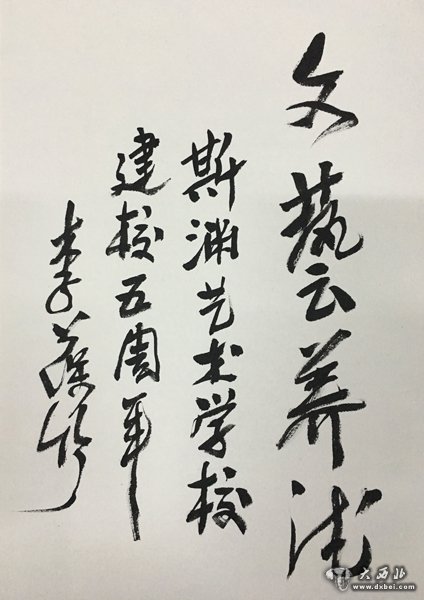 文藝养德
斯渊艺术学校
建校五周年
李
大西北
www.dxbei.com